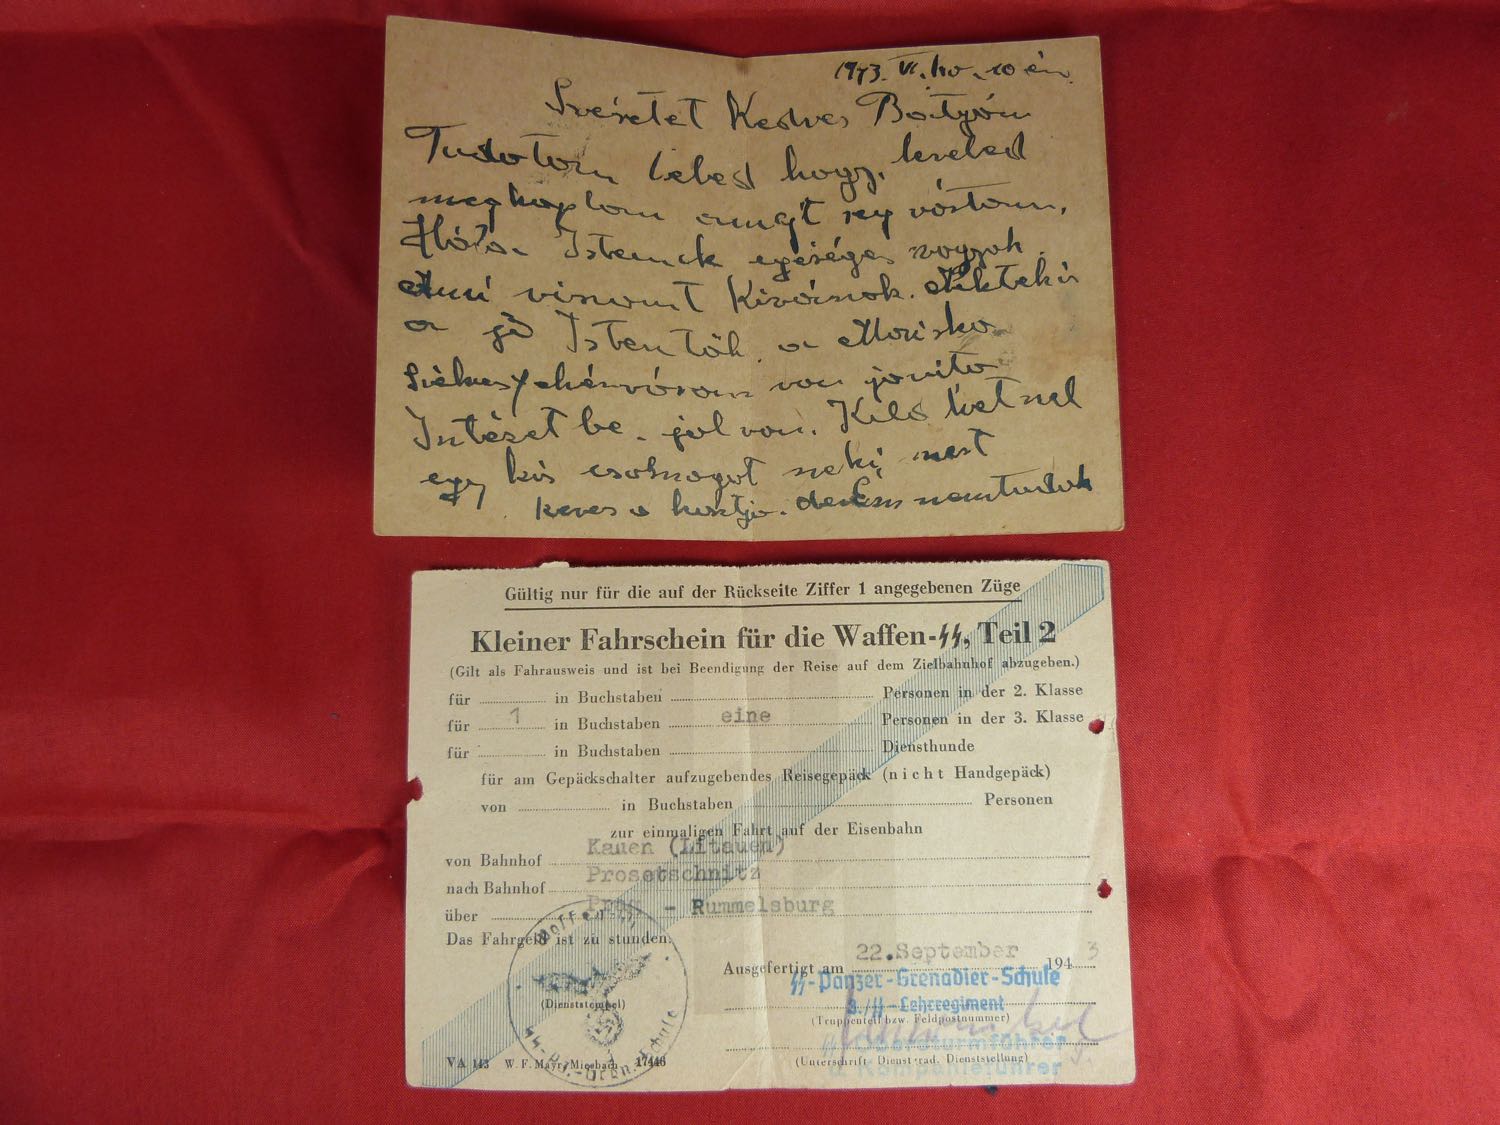 1943. VI. hó. 10 én
Kedves
Tudatom Veled hogy, leveled
megkaptam amit
Hála Istennek egéséges vagyok
Ami viszont Kivánok. Nektek is
a jó Istentöl. a Mariska
Székesfehérváron van javito
Intézet be. jol van.
egy kis csomagot neki mert
keves a kosztja. de én nem tudok
Gültig nur für die auf der Rückseite Ziffer 1 angegebenen Züge
Kleiner Fahrschein für die Waffen-SS, Teil 2
(Gilt als Fahrausweis und ist bei Beendigung der Reise auf dem Zielbahnhof abzugeben.)
für in Buchstaben Personen in der 2. Klasse
für 1 in Buchstaben eine Personen in der 3. Klasse
für in Buchstaben Diensthunde
für am Gepäckschalter aufzugebendes Reisegepäck (nicht Handgepäck)
von in Buchstaben Personen
zur einmaligen Fahrt auf der Eisenbahn
von Bahnhof Kauen (Litauen)
nach Bahnhof Prosetschnitz
über Prag - Rummelsburg
Das Fahrgeld ist zu stunden.
Ausgefertigt am 22.September 1943
SS-Panzer-Grenadier-Schule
3./SS-Lehrregiment
(Truppenteil bzw. Feldpostnummer)
(Dienststempel)
Waffen-SS
SS-Pz.-Gren.-Schule
SS-Obersturmführer
(Unterschrift, Dienstgrad, Dienststellung)
u. Kompanieführer
VA 143 W. F. Mayr, Miesbach 17446